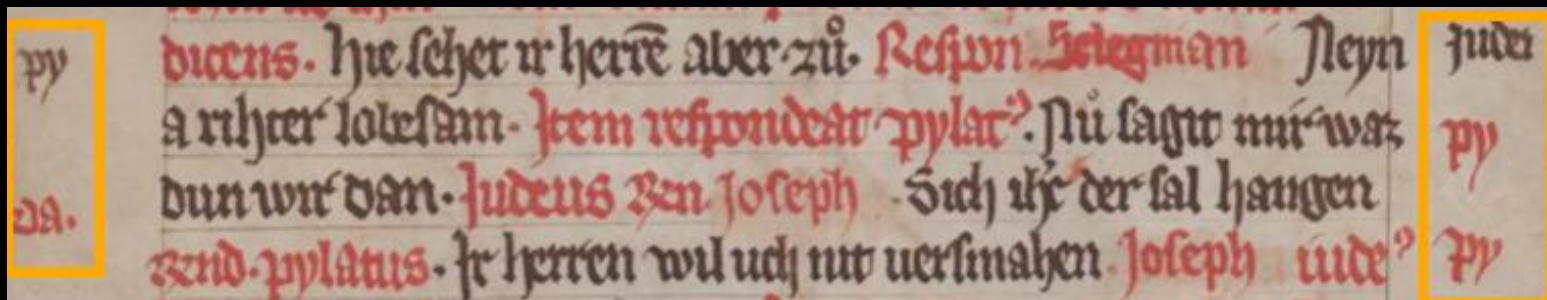 py
da.
dicens. hie sehet ir herrē aber zů. Respon. Selegman Neyn
a rihter lobesam. Item respondeat pylatꝰ. Nů sagit mir waz
dun wir dan. Judeus Ben Joseph Sich ihc̄ der sal hangen
Rend. pylatus. Ir herren wil uch nit uersmahen Joseph iudeꝰ
Judei
py
py